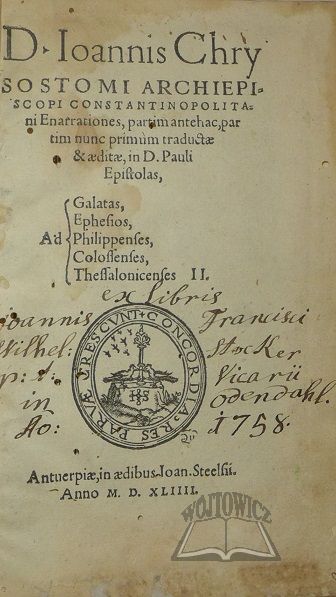 D. Ioannis Chry
SOSTOMI ARCHIEPI-
SCOPI CONSTANTINOPOLITA-
ni Enarrationes, partim antehac, par
tim nunc primùm traductæ
& æditæ, in D. Pauli
Epistolas,
Ad
Galatas,
Ephesios,
Philippenses,
Colossenses,
Thessalonicenses II.
ex Libris
Joannis Francisci
Wilhel: Stocker
p: t: Vicarii
in Odendahl.
Ao: 1758.
CONCORDIA RES PARVÆ CRESCVNT
Antuerpiæ, in ædibus Ioan. Steelsii.
Anno M. D. XLIIII.
WÓJTOWICZ